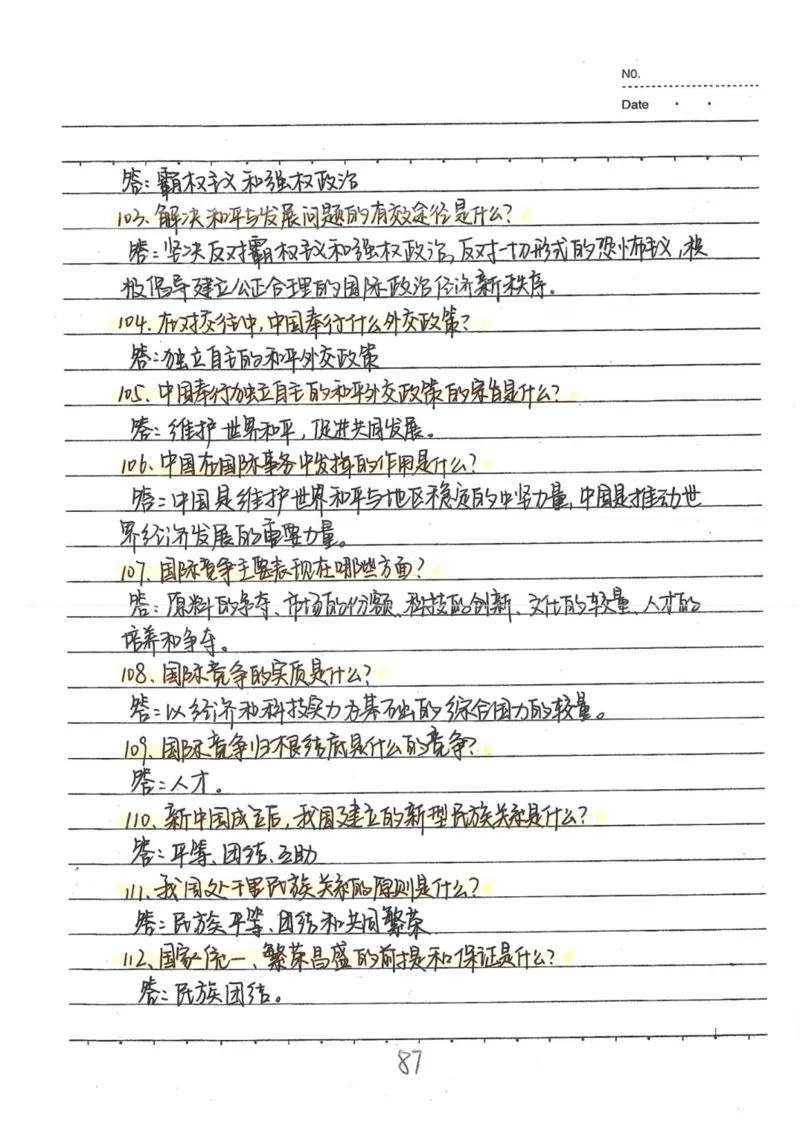 NO.
Date · ·
答:霸权主义和强权政治
103、解决和平与发展问题的有效途径是什么?
答:坚决反对霸权主义和强权政治,反对一切形式的恐怖主义,积
极倡导建立公正合理的国际政治经济新秩序。
104、在对交往中,中国奉行什么外交政策?
答:独立自主的和平外交政策
105、中国奉行独立自主的和平外交政策的宗旨是什么?
答:维护世界和平,促进共同发展。
106、中国在国际事务中发挥的作用是什么?
答:中国是维护世界和平与地区稳定的中坚力量,中国是推动世
界经济发展的重要力量。
107、国际竞争主要表现在哪些方面?
答:原料的争夺、市场的份额、科技的创新、文化的较量、人才的
培养和争夺。
108、国际竞争的实质是什么?
答:以经济和科技实力为基础的综合国力的较量。
109、国际竞争归根结底是什么的竞争?
答:人才。
110、新中国成立后,我国建立的新型民族关系是什么?
答:平等、团结、互助
111、我国处理民族关系的原则是什么?
答:民族平等、团结和共同繁荣
112、国家统一、繁荣昌盛的前提和保证是什么?
答:民族团结。
87